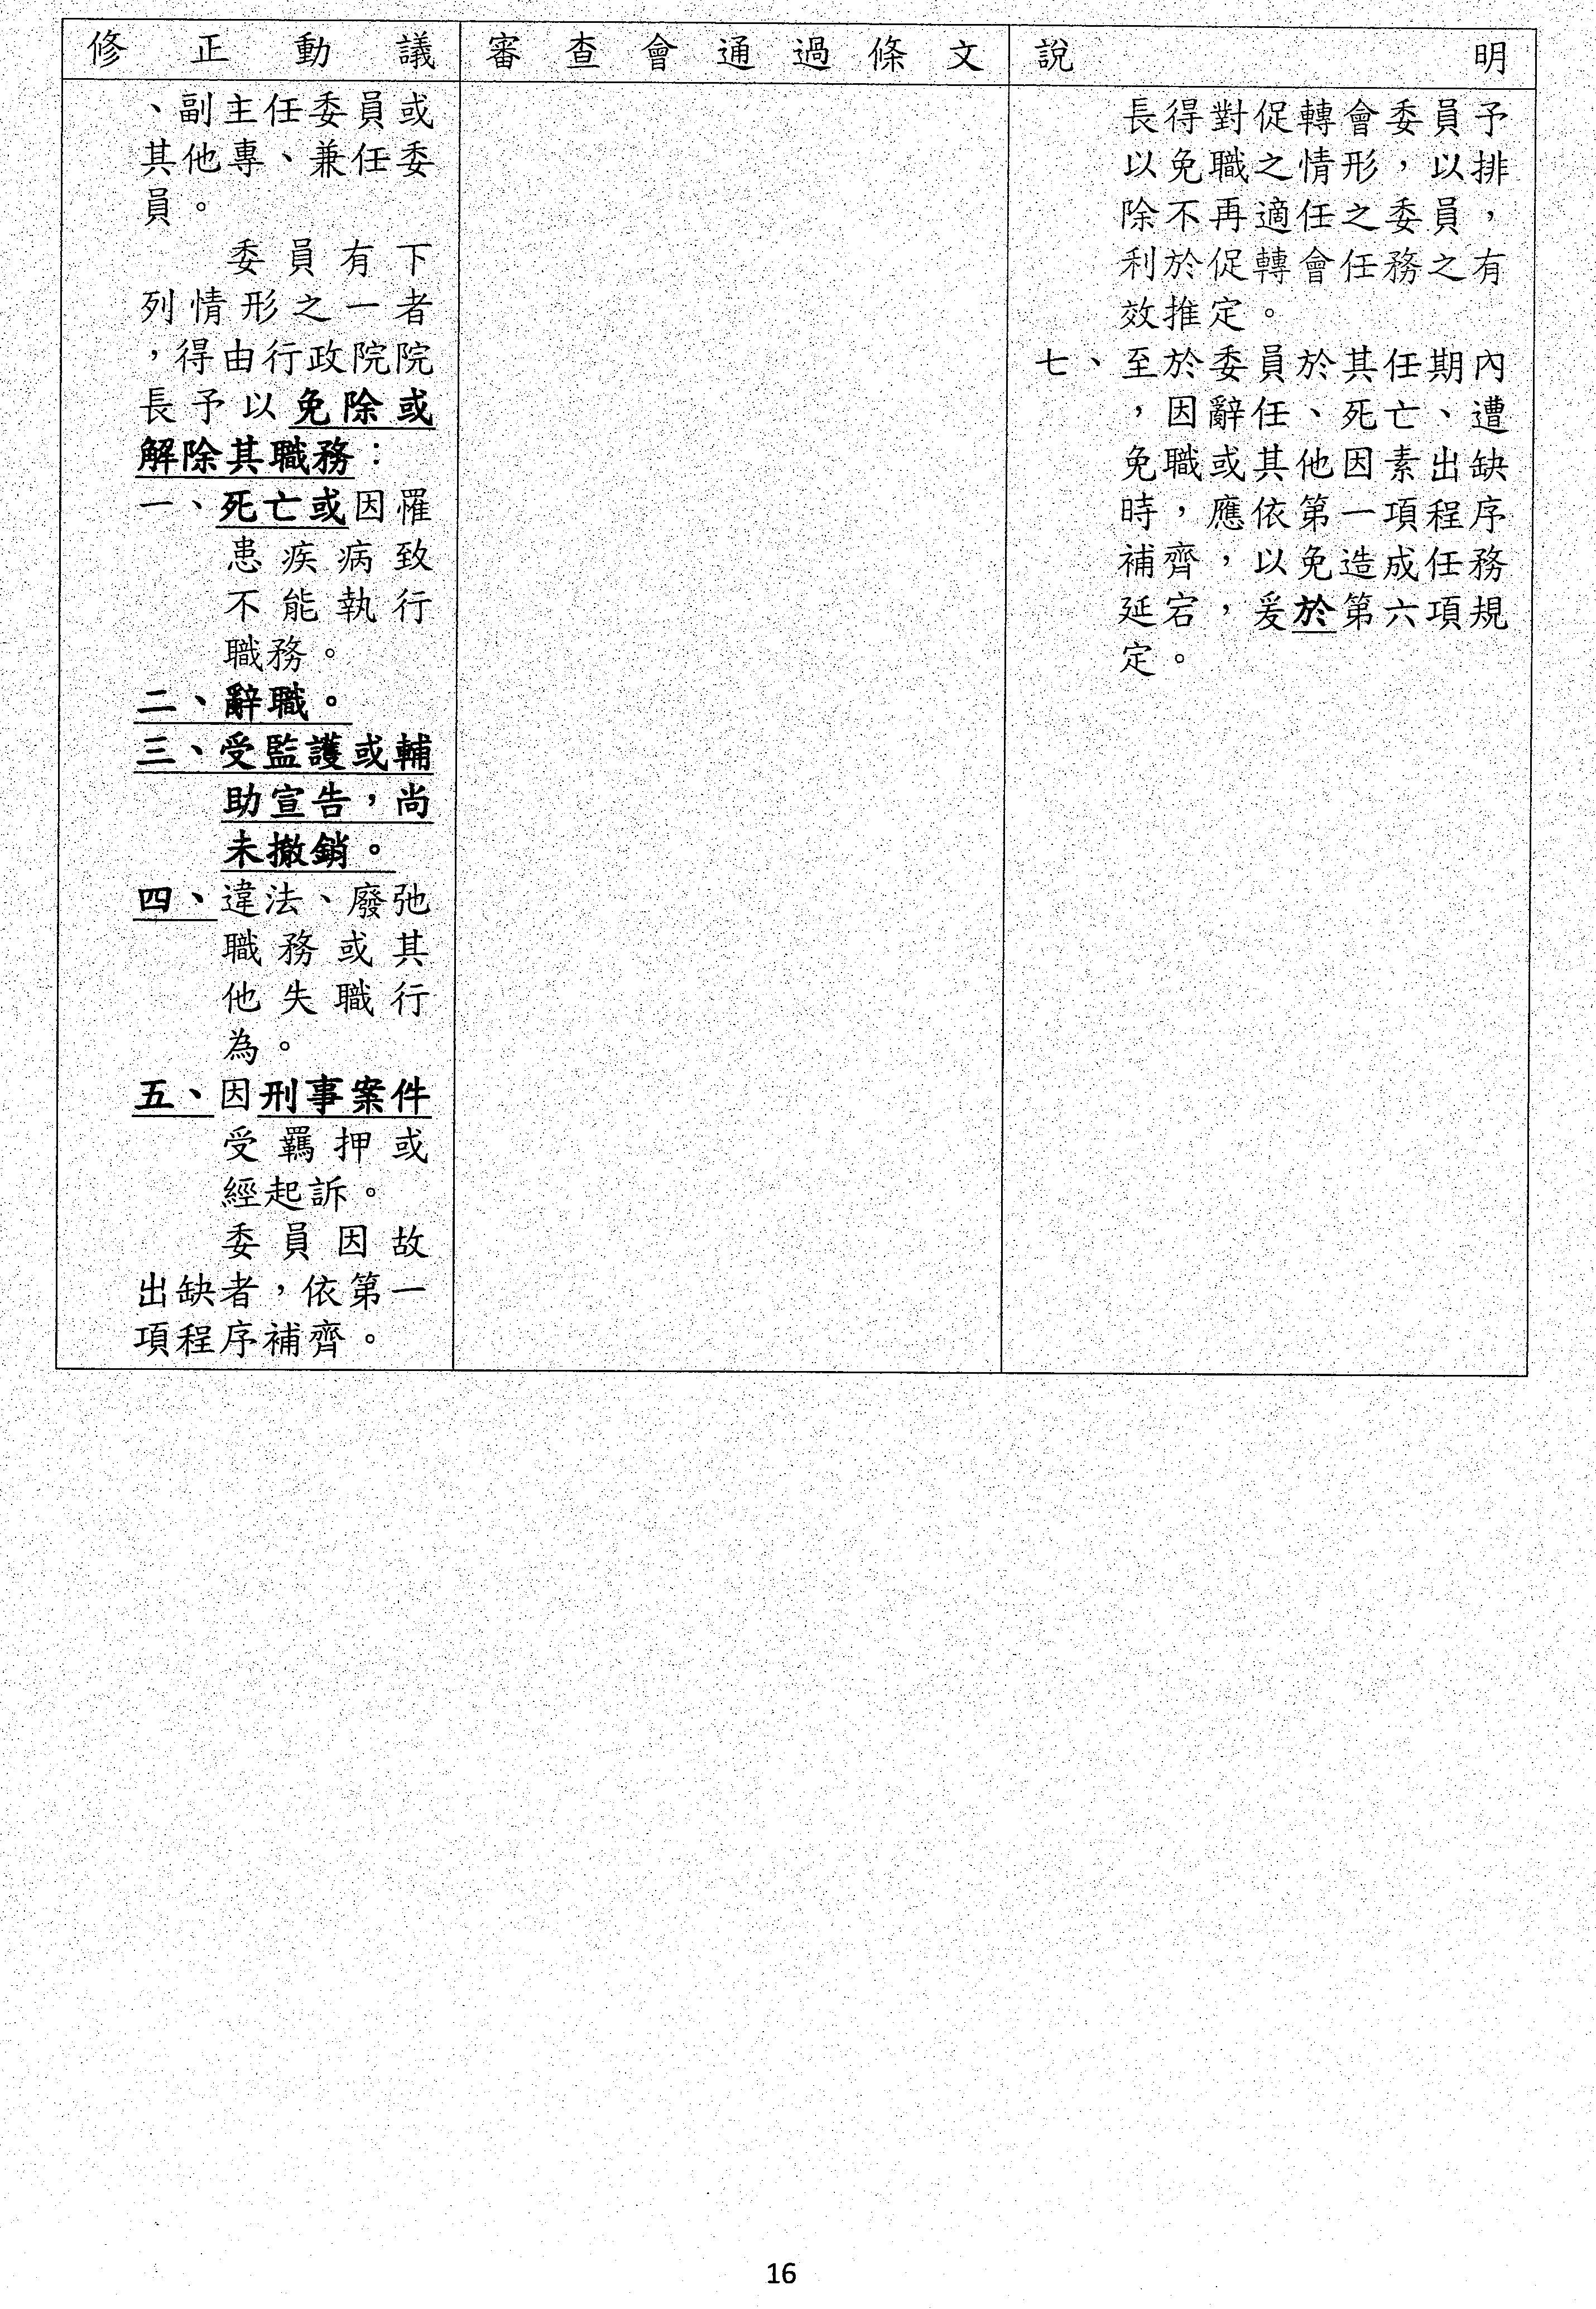 修正動議
審查會通過條文
說明
、副主任委員或
其他專、兼任委
員。
委員有下
列情形之一者
，得由行政院院
長予以免除或
解除其職務：
一、死亡或因罹
患疾病致
不能執行
職務。
二、辭職。
三、受監護或輔
助宣告，尚
未撤銷。
四、違法、廢弛
職務或其
他失職行
為。
五、因刑事案件
受羈押或
經起訴。
委員因故
出缺者，依第一
項程序補齊。
長得對促轉會委員予
以免職之情形，以排
除不再適任之委員，
利於促轉會任務之有
效推定。
七、至於委員於其任期內
，因辭任、死亡、遭
免職或其他因素出缺
時，應依第一項程序
補齊，以免造成任務
延宕，爰於第六項規
定。
16